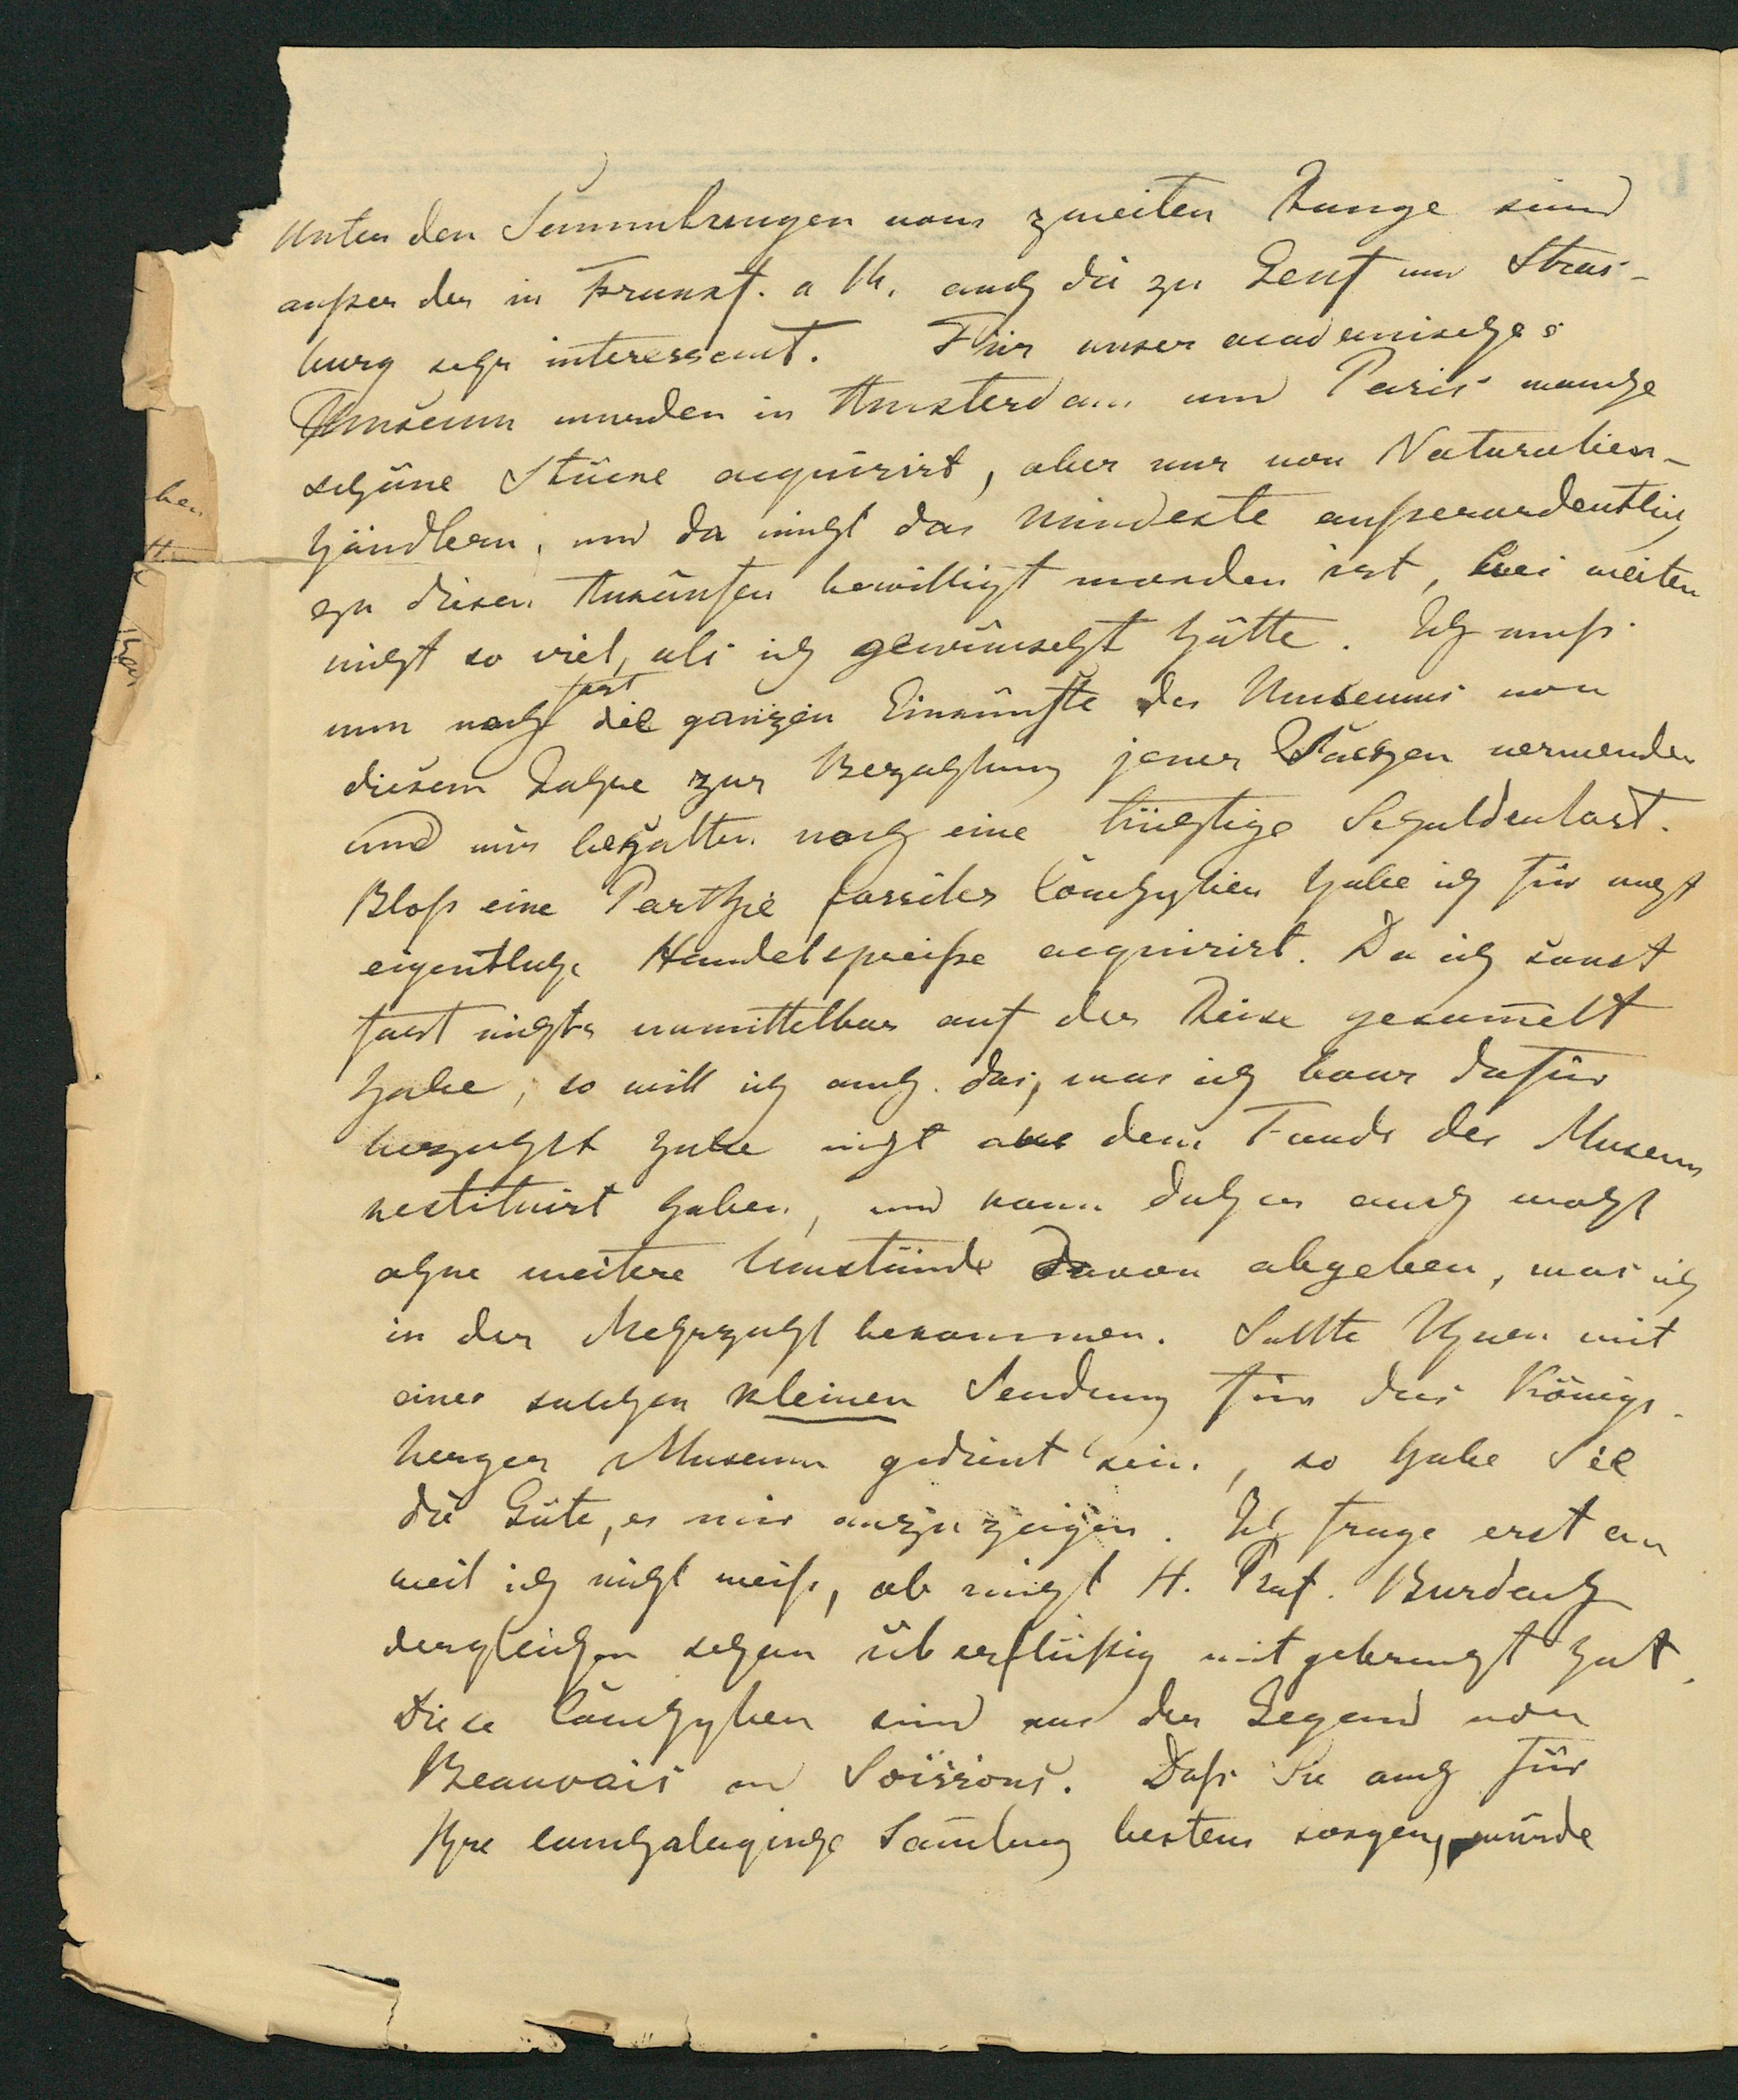 Unter den Sammlungen vom zweiten Range sind
außer der in Frankf. a M. auch die zu Genf und Stras-
burg sehr interessant. Für unser academisches
Museum wurden in Amsterdam und Paris manche
schöne Stücke acquirirt, aber nur von Naturalien-
händlern, und da nicht das Mindeste außerordentlich
zu diesen Ankäufen bewilligt worden ist, bei weiten
nicht so viel, als ich gewünscht hätte. Ich muß
nun noch fast die ganzen Einkünfte des Museums von
diesem Jahre zur Bezahlung jener Sachen verwenden
und wir behalten noch eine tüchtige Schuldenlast.
Bloß eine Parthie fossiler Conchylien habe ich für nicht
eigentliche Handelspreiße acquirirt. Da ich sonst
fast nichts unmittelbar auf der Reise gesam̅elt
habe, so will ich auch das, was ich baar dafür
bezahlt habe nicht aus dem Fonds des Museums
restituirt haben, und kann daher auch wohl
ohne weitere Umstände davon abgeben, was ich
in der Mehrzahl bekommen. Sollte Ihnen mit
einer solchen kleinen Sendung für das Königs-
berger Museum gedient sein, so habe Sie
die Güte, es mir anzuzeigen. Ich frage erst an
weil ich nicht weiß, ob nicht H. Prof. Burdach
dergleichen schon überflüßig mitgebracht hat.
Diese Conchylien sind aus der Gegend von
Beauvais und Soissons. Daß Sie auch für
Ihre conchologische Sam̅lung bestens sorgen, würde
ben